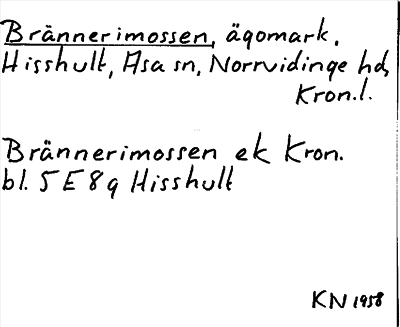 Brännerimossen, ägomark,
Hisshult, Asa sn, Norrvidinge hd,
Kron.l.
Brännerimossen ek Kron.
bl. 5E8g Hisshult
KN 1958